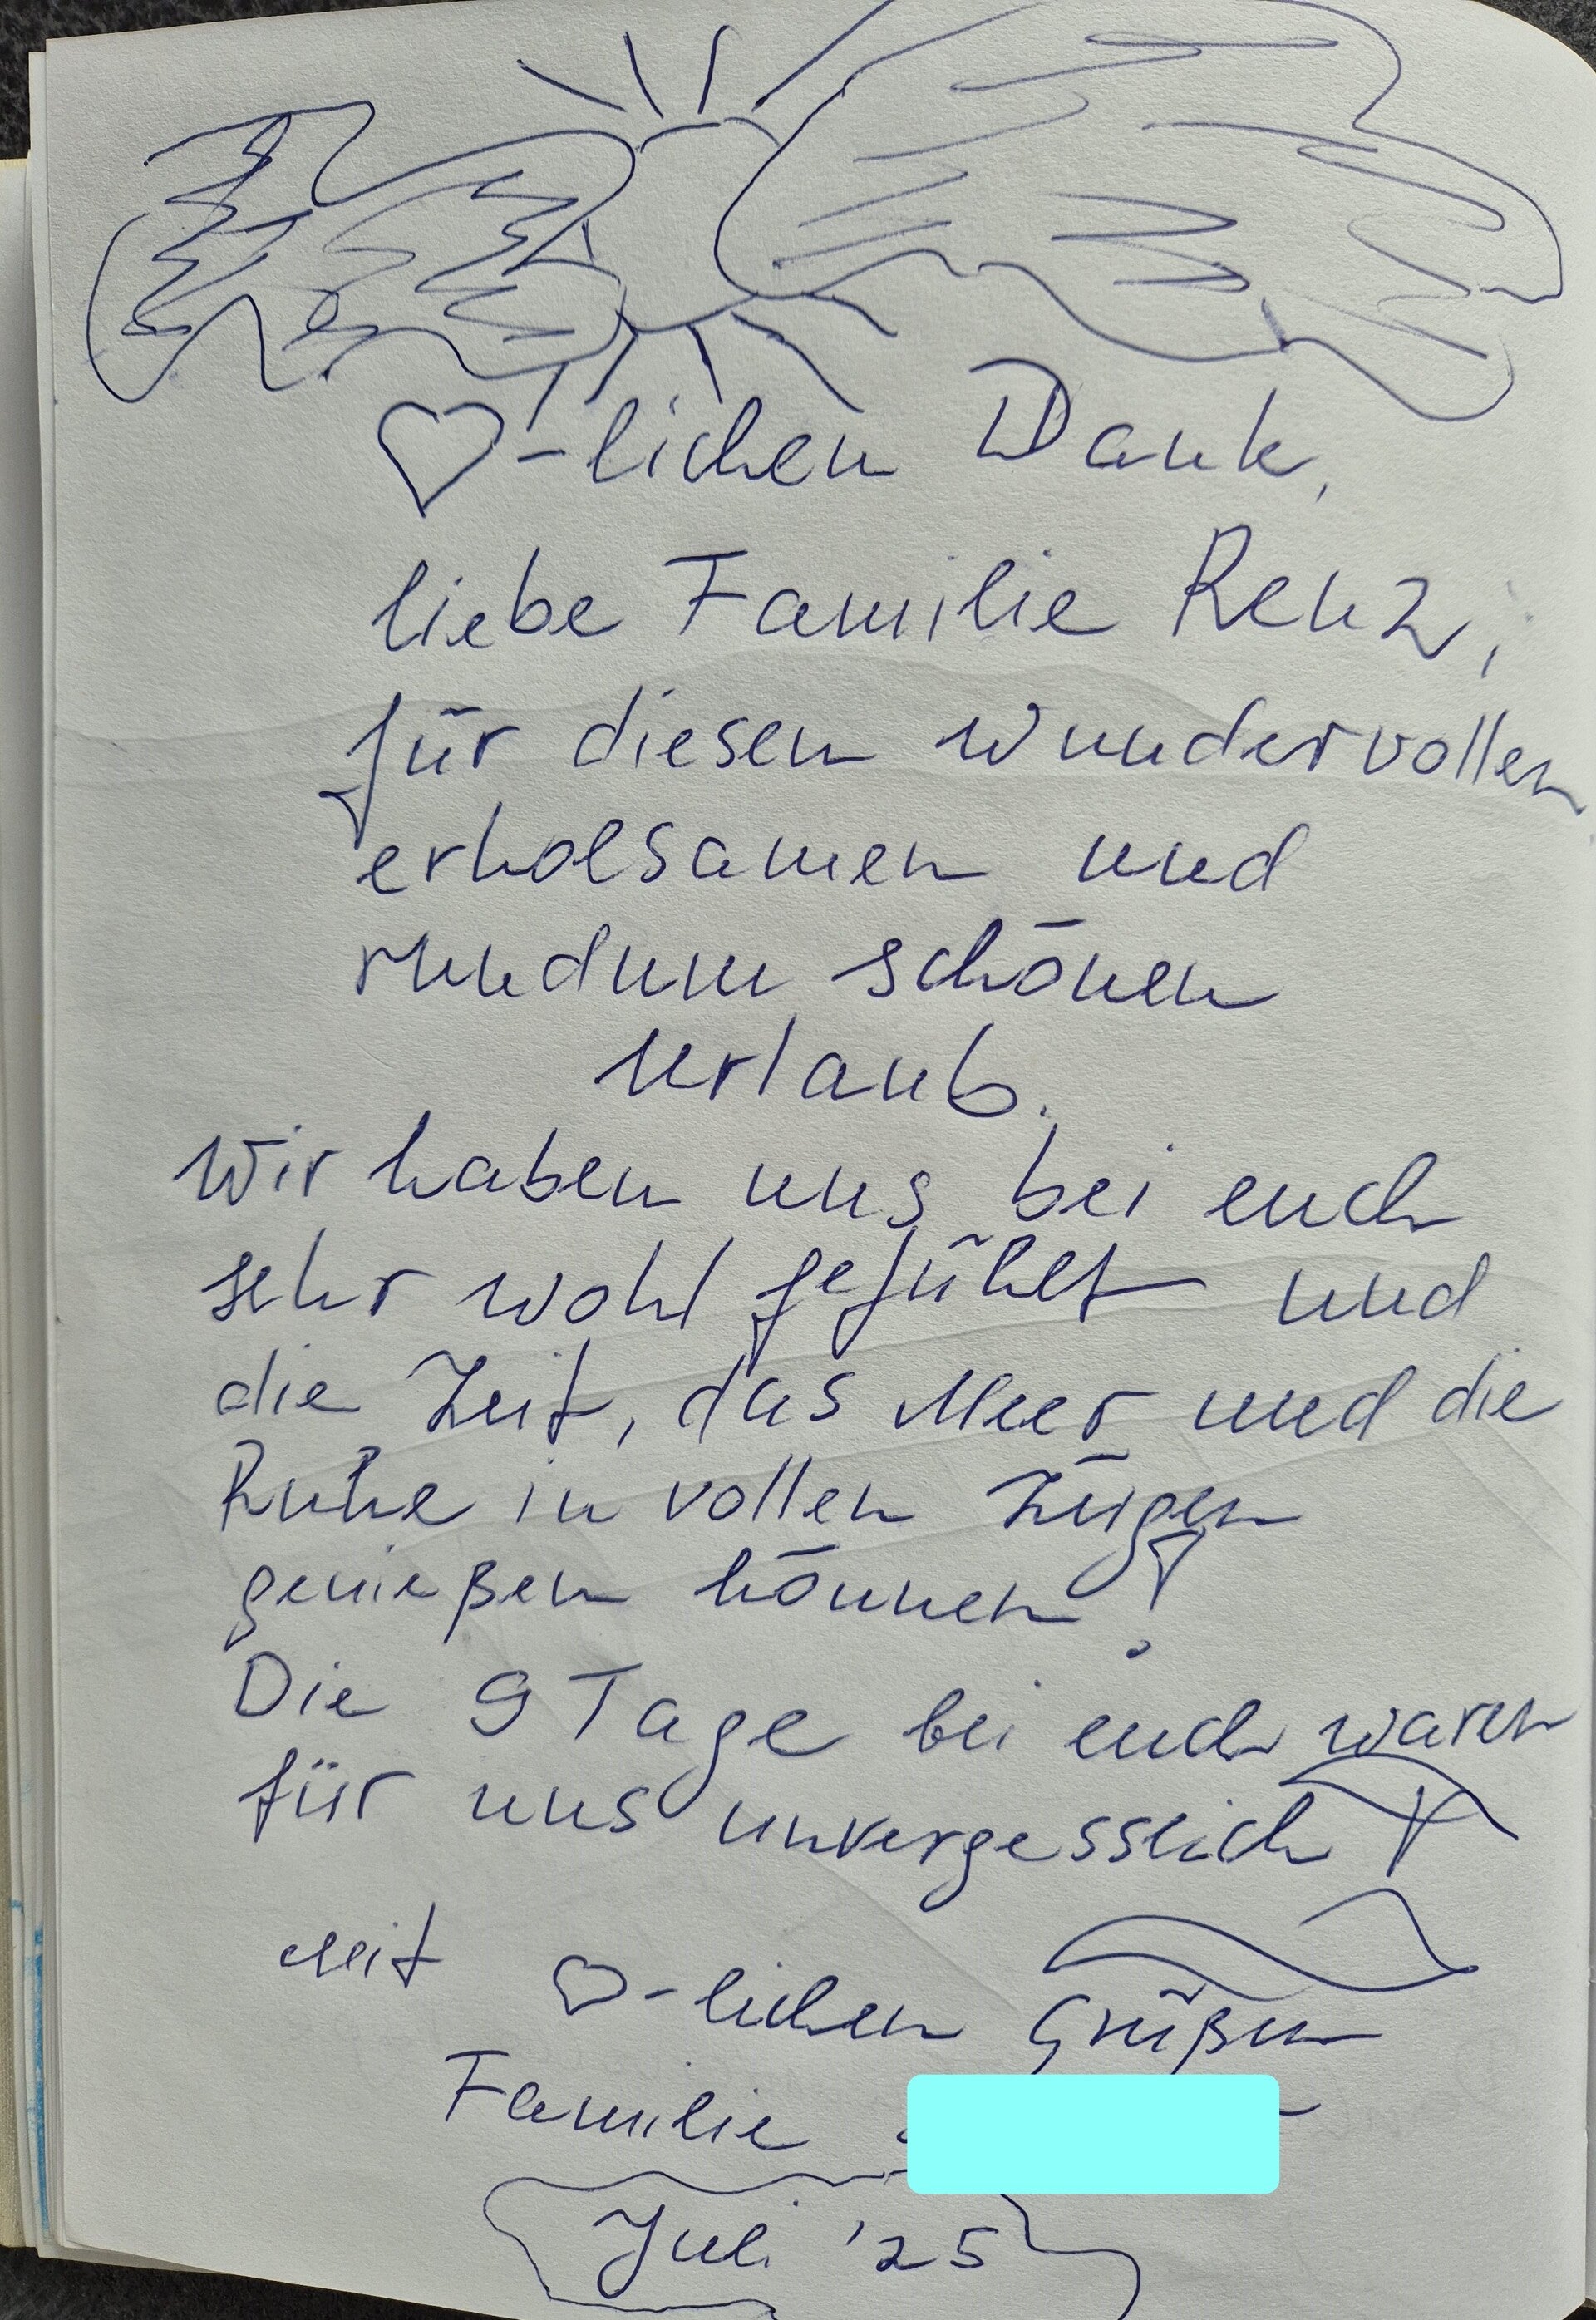 ♡-lichen Dank,
liebe Familie Renz,
für diesen wundervollen
erholsamen und
rundum schönen
Urlaub.
Wir haben uns bei euch
sehr wohl gefühlt und
die Zeit, das Meer und die
Ruhe in vollen Zügen
genießen können!
Die 9 Tage bei euch waren
für uns unvergesslich
Mit ♡-lichen Grüßen
Familie
Juli '25